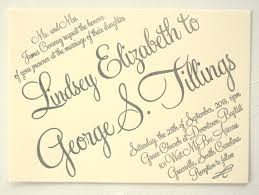 Mr. and Mrs.
James Conway request the honour
of your presence at the marriage of their daughter
Lindsey Elizabeth to
George S. Tillings
Saturday the 28th of September, 2013, 6pm
Grace Church at Downtown Baptist
101 West McBee Avenue
Greenville, South Carolina
Reception to follow